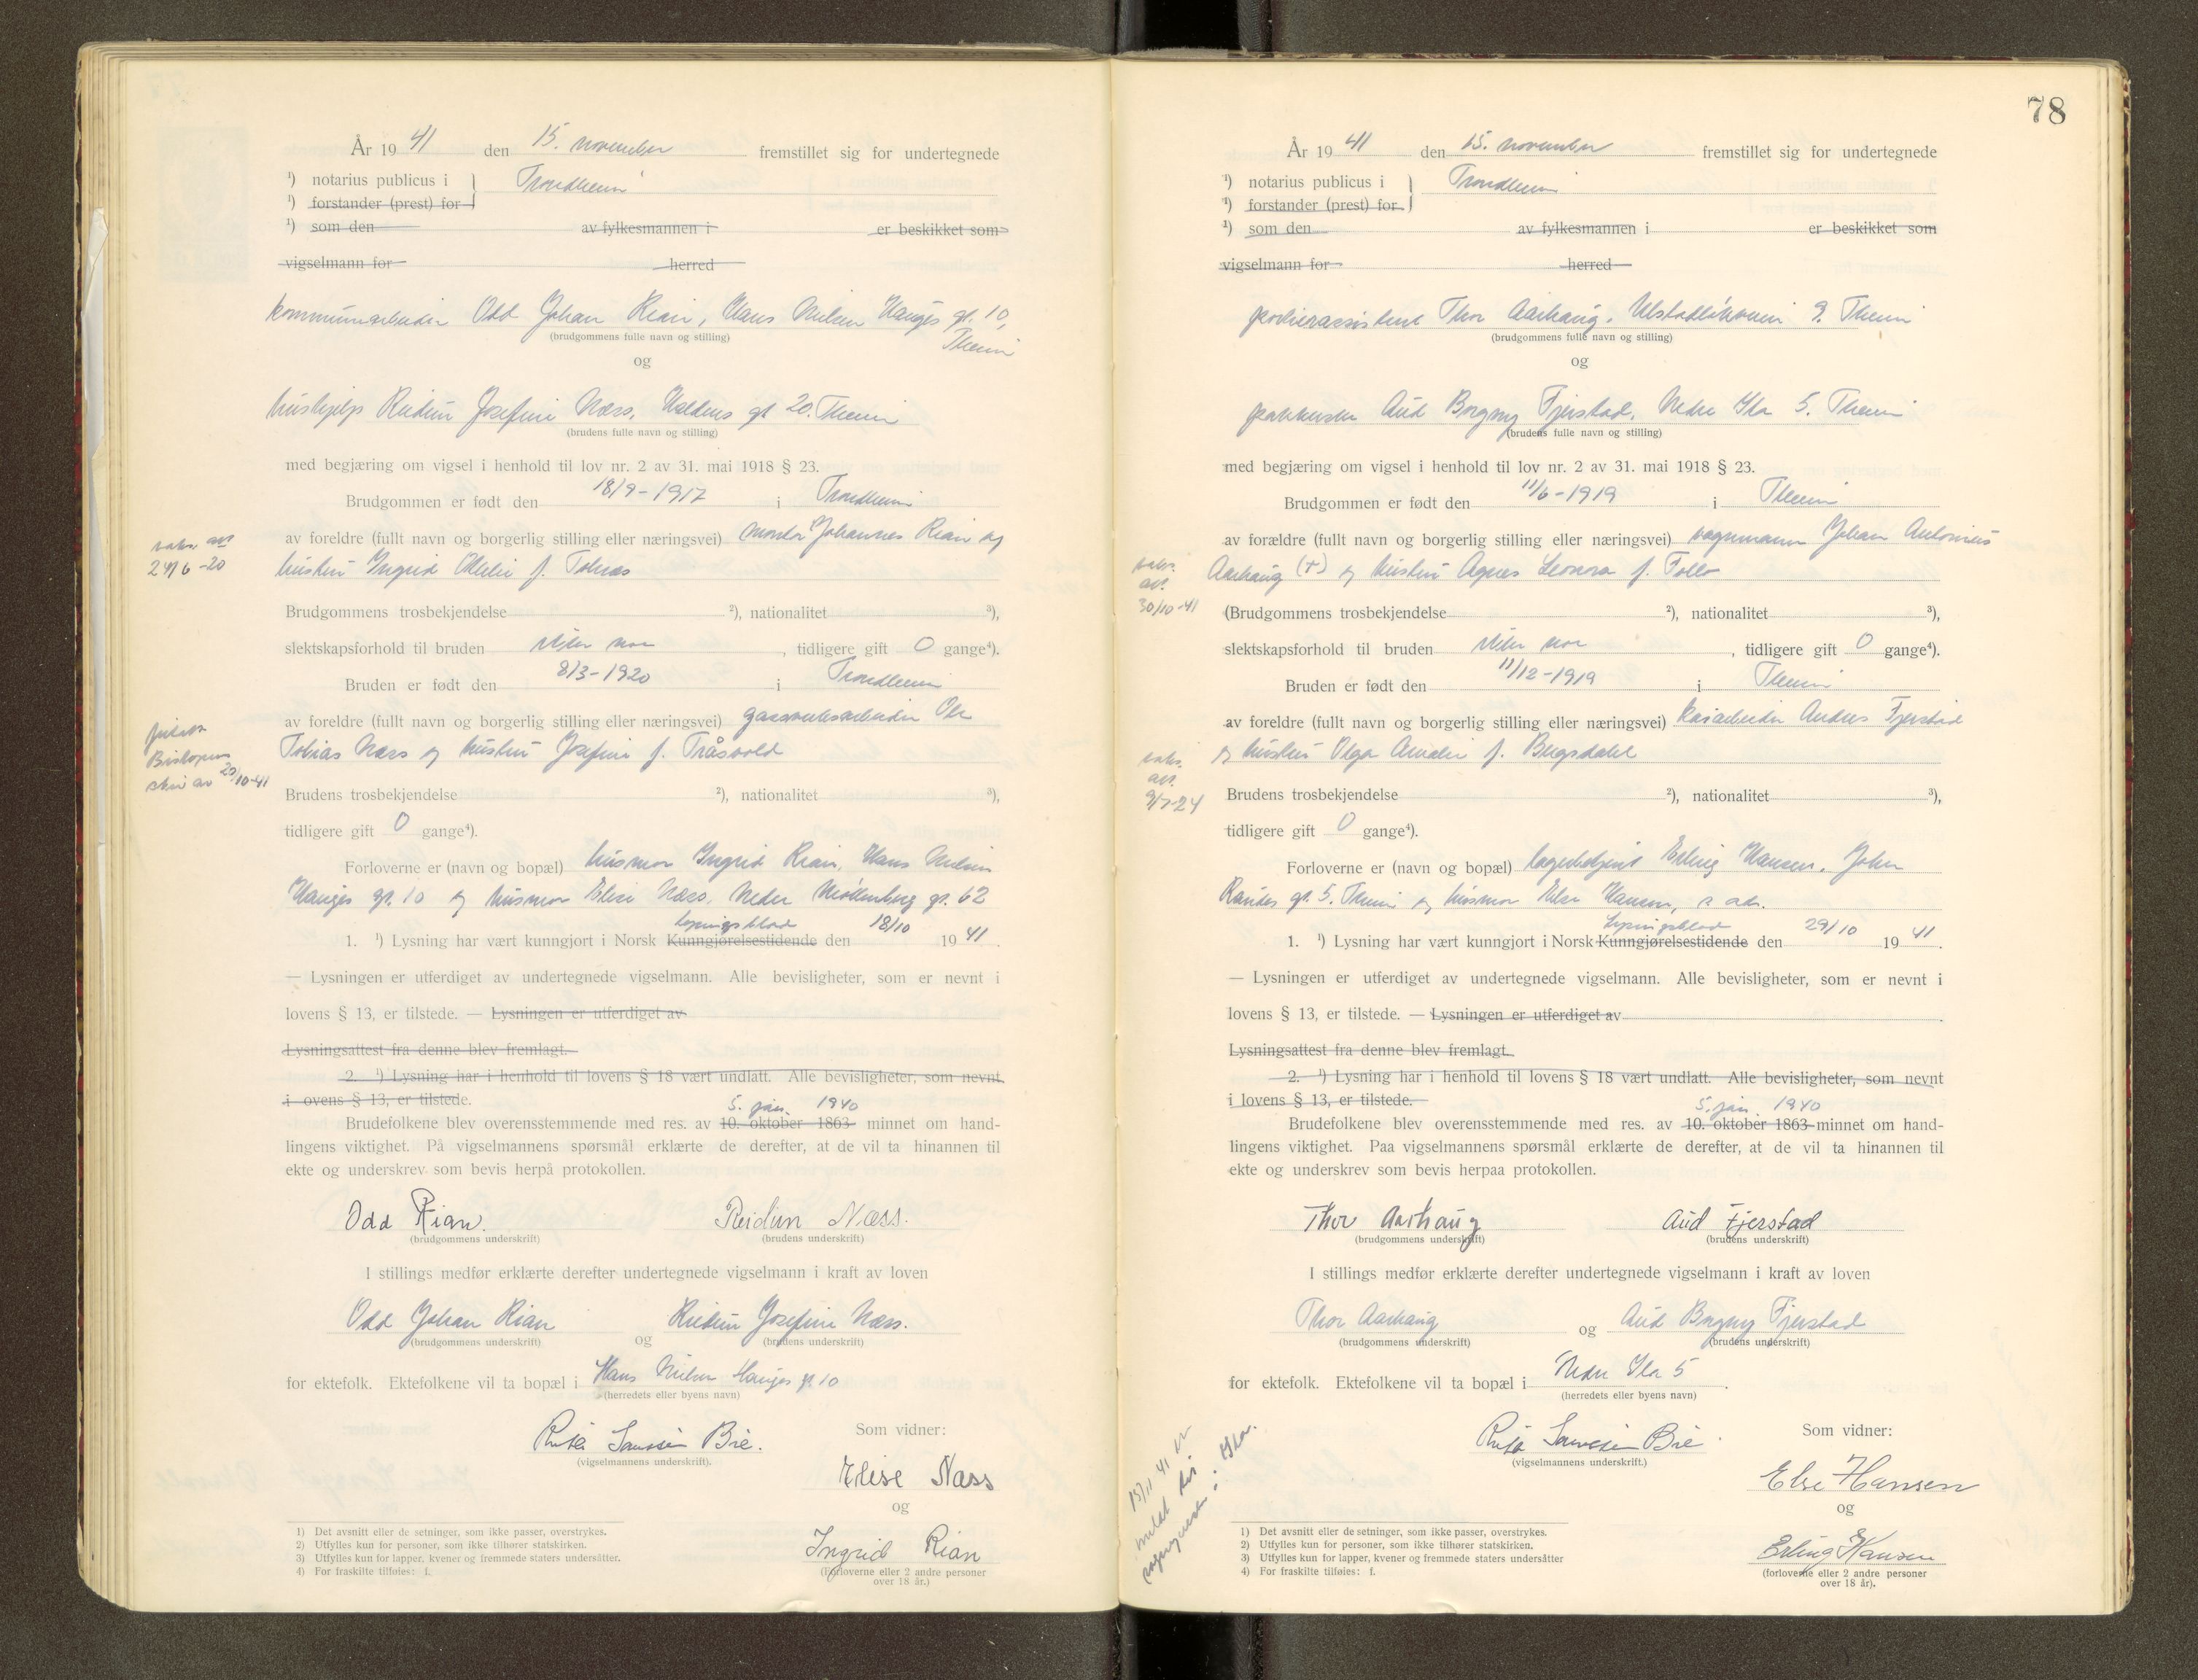 År 19 41 den 15. november fremstillet sig for undertegnede
¹) notarius publicus i } Trondheim
¹) forstander (prest) for
¹) som den av fylkesmannen i er beskikket som
vigselmann for herred
Odd Johan Rian, Hans Nilsen Hauges gt. 10,
Theim
(brudgommens fulle navn og stilling)
og
hushjelp Reidun Josefine Næss, gt 20. Theim
(brudens fulle navn og stilling)
med begjæring om vigsel i henhold til lov nr. 2 av 31. mai 1918 § 23.
Brudgommen er født den 18/9-1917 i Trondheim
av foreldre (fullt navn og borgerlig stilling eller næringsvei) montør Johannes Rian og
24/6-20
hustru Ingrid f. Tobias
Brudgommens trosbekjendelse ²), nationalitet ³),
slektskapsforhold til bruden , tidligere gift 0 gange⁴).
Bruden er født den 8/3-1920 i Trondheim
av foreldre (fullt navn og borgerlig stilling eller næringsvei) gassverksarbeider Ole
Tobias Næss og hustru Josefine f. Tråsvold
Biskopens
skriv av 20/10-41
Brudens trosbekjendelse ²), nationalitet ³),
tidligere gift 0 gange⁴).
Forloverne er (navn og bopæl) husmor Ingrid Rian, Hans Nilsen
Hauges gt. 10 og husmor Elise Næss, Nedre Møllenberg gt. 62
Lysningsblad
1. ¹) Lysning har vært kunngjort i Norsk Kunngjørelsestidende den 18/10 19 41.
— Lysningen er utferdiget av undertegnede vigselmann. Alle bevisligheter, som er nevnt i
lovens § 13, er tilstede. — Lysningen er utferdiget av
Lysningsattest fra denne blev fremlagt.
2. ¹) Lysning har i henhold til lovens § 18 vært undlatt. Alle bevisligheter, som nevnt
i ovens § 13, er tilstede.
5. jan. 1940
Brudefolkene blev overensstemmende med res. av 10. oktober 1863 minnet om hand-
lingens viktighet. På vigselmannens spørsmål erklærte de derefter, at de vil ta hinannen til
ekte og underskrev som bevis herpå protokollen.
Odd Rian. Reidun Næss.
(brudgommens underskrift) (brudens underskrift)
I stillings medfør erklærte derefter undertegnede vigselmann i kraft av loven
Odd Johan Rian og Reidun Josefine Næss.
(brudgommens underskrift) (brudens underskrift)
for ektefolk. Ektefolkene vil ta bopæl i Hans Nilsen Hauges gt 10
(herredets eller byens navn)
Som vidner:
Bie.
(vigselmannens underskrift).
Elise Næss
og
Ingrid Rian
(Forloverne eller 2 andre personer
over 18 år.)
1) Det avsnitt eller de setninger, som ikke passer, overstrykes.
2) Utfylles kun for personer, som ikke tilhører statskirken.
3) Utfylles kun for lapper, kvener og fremmede staters undersåtter.
4) For fraskilte tilføies: f.
78
År 19 41 den 15. november fremstillet sig for undertegnede
¹) notarius publicus i } Trondheim
¹) forstander (prest) for
¹) som den av fylkesmannen i er beskikket som
vigselmann for herred
Thor Aarhaug. 9. Theim
(brudgommens fulle navn og stilling)
og
Aud Borgny Fjerstad, Nedre Ila 5. Theim
(brudens fulle navn og stilling)
med begjæring om vigsel i henhold til lov nr. 2 av 31. mai 1918 § 23.
Brudgommen er født den 11/6-1919 i Theim
av forældre (fullt navn og borgerlig stilling eller næringsvei) vognmann Johan Antonius
Aarhaug (+) og hustru Agnes Leonora f. Follo
30/10-41
(Brudgommens trosbekjendelse ²), nationalitet ³),
slektskapsforhold til bruden , tidligere gift 0 gange⁴).
Bruden er født den 11/12-1919 i Theim
av foreldre (fullt navn og borgerlig stilling eller næringsvei) kaiarbeider Fjerstad
og hustru Olga Amalie f. Bergsdahl
9/7-24
Brudens trosbekjendelse ²), nationalitet ³),
tidligere gift 0 gange⁴).
Forloverne er (navn og bopæl) lagerbetjent Erling Hansen, John
gt. 5. Theim og husmor Else Hansen, s. adr.
Lysningsblad
1. ¹) Lysning har vært kunngjort i Norsk Kunngjørelsestidende den 29/10 19 41.
— Lysningen er utferdiget av undertegnede vigselmann. Alle bevisligheter, som er nevnt i
lovens § 13, er tilstede. — Lysningen er utferdiget av
Lysningsattest fra denne blev fremlagt.
2. ¹) Lysning har i henhold til lovens § 18 vært undlatt. Alle bevisligheter, som nevnt
i lovens § 13, er tilstede.
5. jan. 1940
Brudefolkene blev overensstemmende med res. av 10. oktober 1863 minnet om hand-
lingens viktighet. Paa vigselmannens spørsmål erklærte de derefter, at de vil ta hinannen til
ekte og underskrev som bevis herpaa protokollen.
Thor Aarhaug Aud Fjerstad
(brudgommens underskrift) (brudens underskrift)
I stillings medfør erklærte derefter undertegnede vigselmann i kraft av loven
Thor Aarhaug og Aud Borgny Fjerstad
(brudgommens underskrift) (brudens underskrift)
for ektefolk. Ektefolkene vil ta bopæl i Nedre Ila 5.
(herredets eller byens navn)
Som vidner:
Bie
(vigselmannens underskrift.)
Else Hansen
og
Erling Hansen
(forloverne eller 2 andre personer
over 18 år).
1) Det avsnitt eller de setninger, som ikke passer, overstrykes.
2) Utfylles kun for personer, som ikke tilhører statskirken.
3) Utfylles kun for lapper, kvener og fremmede staters undersåtter
4) For fraskilte tilføies: f.